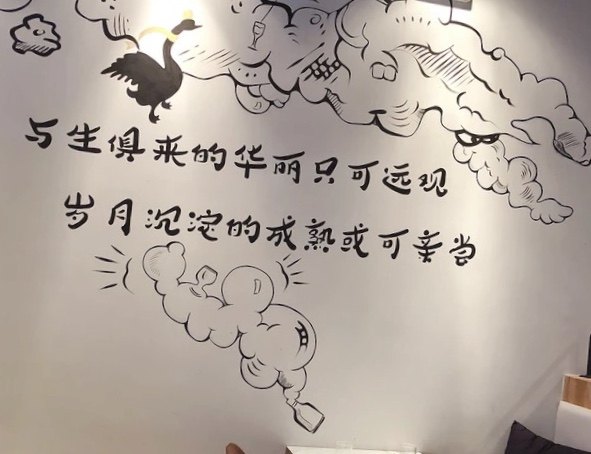 与生俱来的华丽只可远观
岁月沉淀的成熟或可亲尝